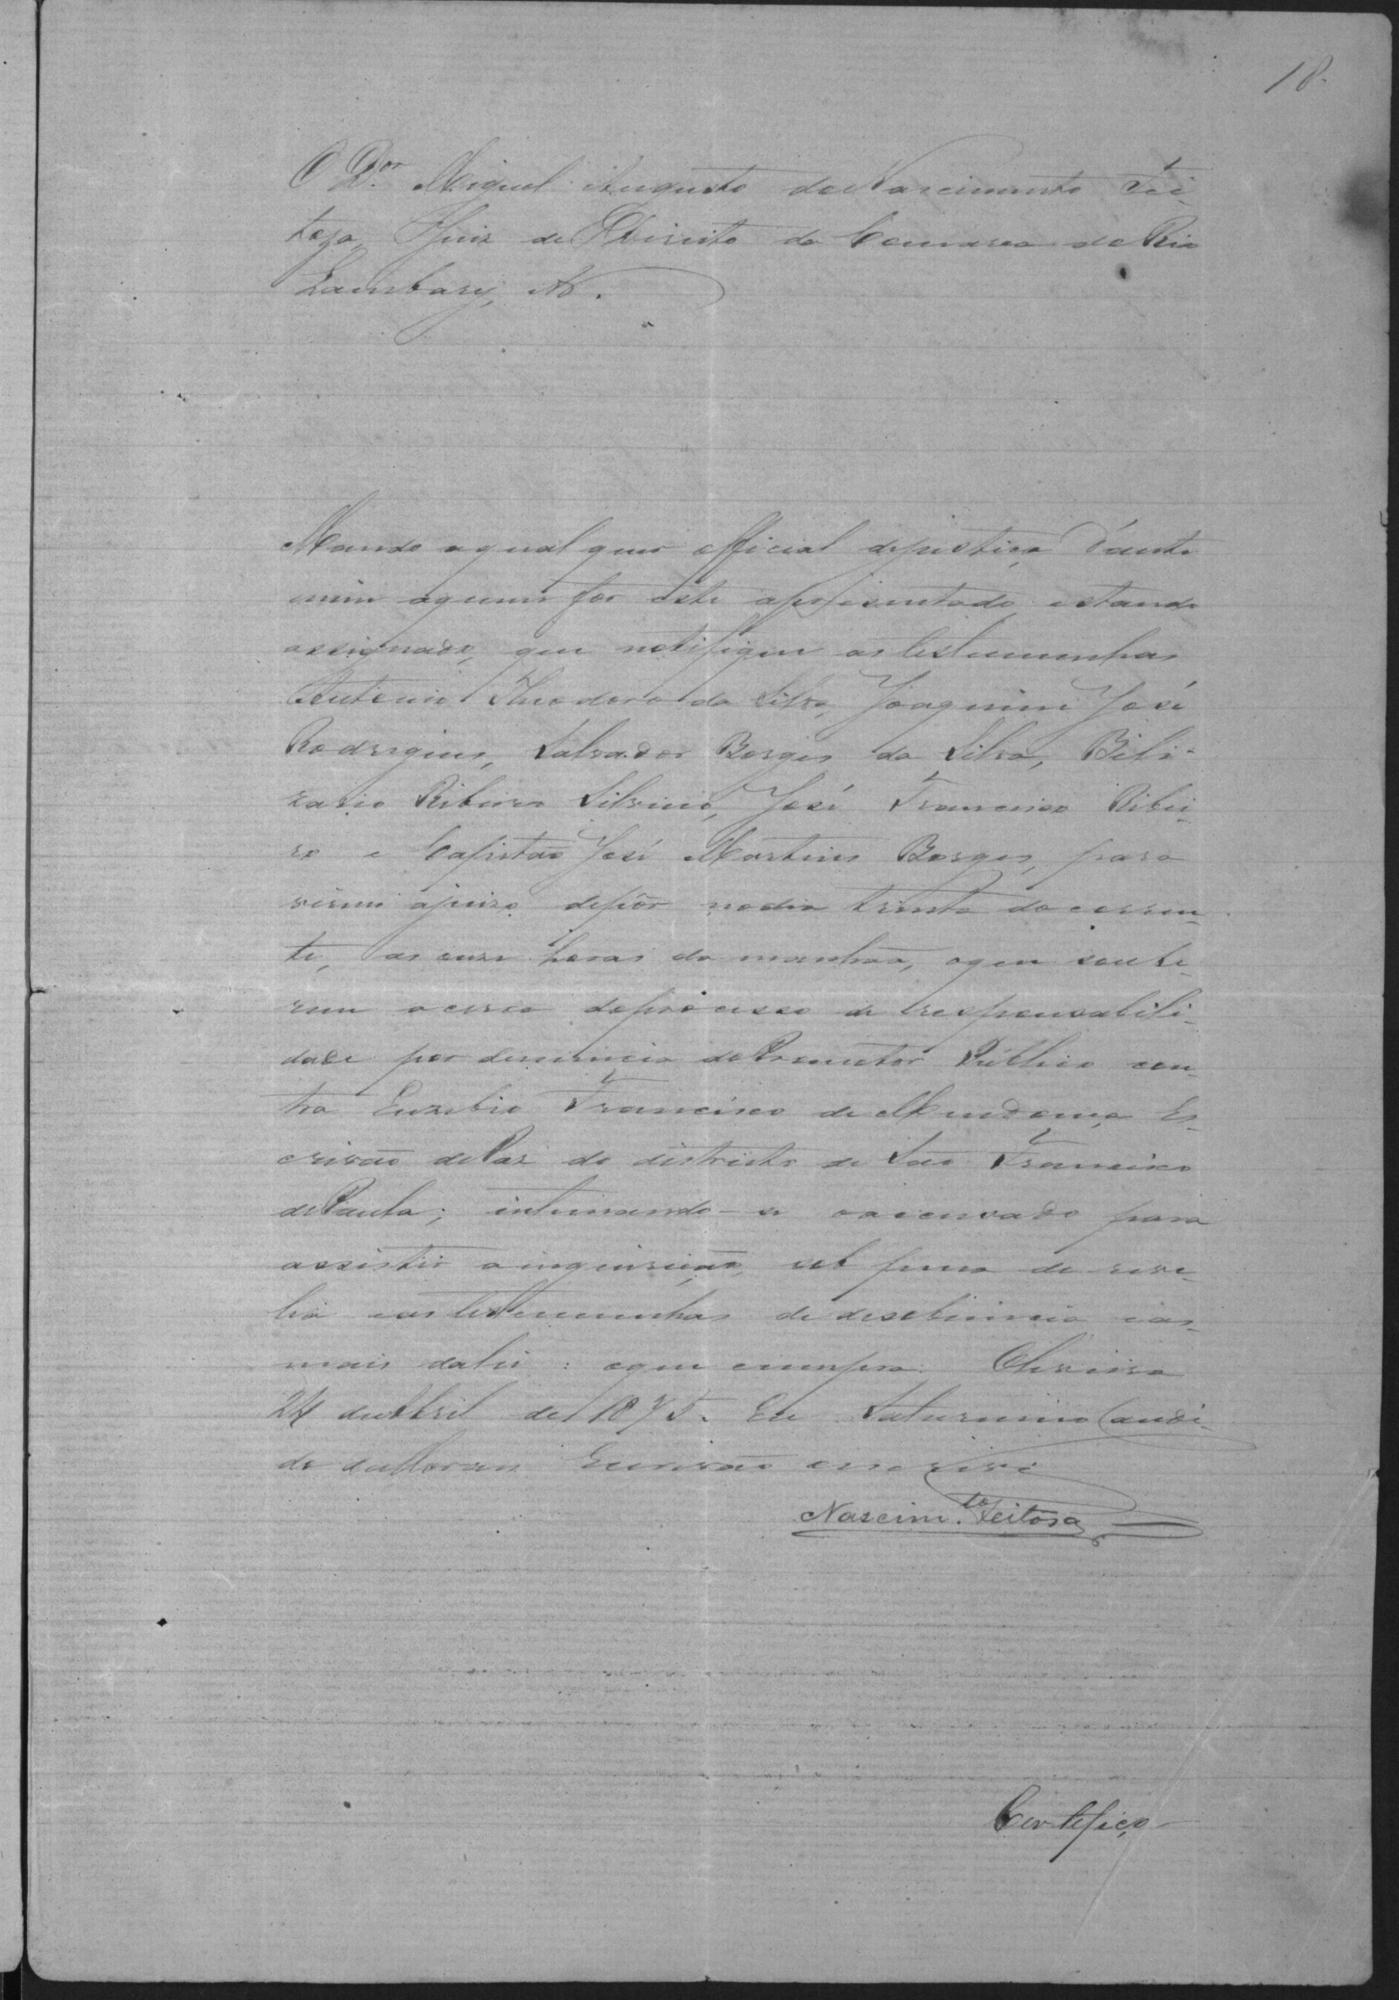 18.
O Dor. Miguel Augusto do Nascimento Fei-
toza, Juiz de Direito da Comarca do Rio
Lambary, &.
Mando a qual quer official dejustiça d'ante
mim aquem for este apresentado, estando
assignado, que notifique as testemunhas
Antonio Theodoro da Silva, Joaquim José
Rodrigues, Salvador Borges da Silva, Beli-
zario Ribeiro Silvino, José Francisco Ribei-
ro e Capitão José Martins Borges, para
virem ajuiso depôr nodia trinta do corren-
te, as onze horas da manhãa, oque soube-
rem acerca doprocesso de responsabili-
dade por denuncia doPromotor Publico con-
tra Euzebio Francisco de Mendonça Es-
crivão dePaz do districto de São Francisco
dePaula; intimando-se oaccusado para
assistir a inquirição, sob pena de reve-
lia eastestemunhas de desobiencia eas
mais dalei: oque cumpra. Oliveira
24 deAbril de 1875. Eu Saturnino Candi-
do deMoraes Escrivão oescrivi
Nascim.to Feitosa
Certifico